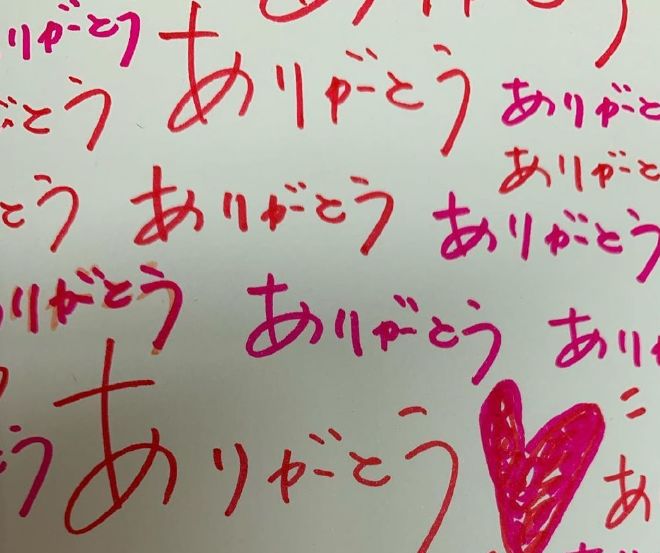 ありがとう
ありがとう
ありがとう ありがと
がとう
ありがと
とう ありがとう ありがとう
りがとう ありがとう ありが
ありがとう
とう
あ